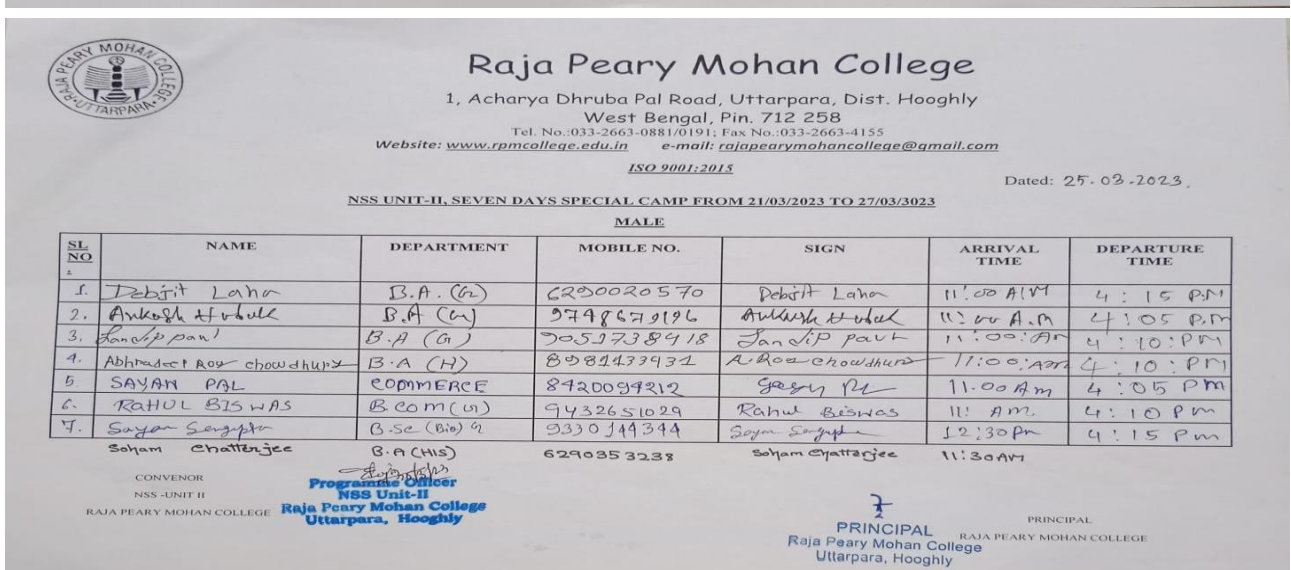 RAJA PEARY MOHAN COLLEGE
UTTARPARA
Raja Peary Mohan College
1, Acharya Dhruba Pal Road, Uttarpara, Dist. Hooghly
West Bengal, Pin. 712 258
Tel. No.:033-2663-0881/0191; Fax No.:033-2663-4155
Website: www.rpmcollege.edu.in e-mail: rajapearymohancollege@gmail.com
ISO 9001:2015
Dated: 25-03-2023.
NSS UNIT-II, SEVEN DAYS SPECIAL CAMP FROM 21/03/2023 TO 27/03/3023
MALE
SL NO. NAME DEPARTMENT MOBILE NO. SIGN ARRIVAL TIME DEPARTURE TIME
1. Debjit Laha B.A. (G) 6290020570 Debjit Laha 11:00 AM 4:15 P.M
2. Ankush B.A (G) 9748679196 Ankush 11:00 A.M 4:05 P.M
3. Sandip paul B.A (G) 9051738918 Sandip paul 11:00:AM 4:10:PM
4. Abhradeet Roy chowdhury B.A (H) 8981433931 A. Roy chowdhury 11:00:AM 4:10:PM
5. SAYAN PAL COMMERCE 8420094212 11.00 Am 4:05 PM
6. RAHUL BISWAS B.com(G) 9432651029 Rahul Biswas 11: AM. 4:10 Pm
7. Sayan Sengupta B.Sc (Bio) G 9330144344 Sayan Sengupta 12:30 Pm 4:15 Pm
Soham Chatterjee B.A (HIS) 6290353238 Soham Chatterjee 11:30AM
CONVENOR
NSS -UNIT II
RAJA PEARY MOHAN COLLEGE
Programme Officer
NSS Unit-II
Raja Peary Mohan College
Uttarpara, Hooghly
PRINCIPAL
Raja Peary Mohan College
Uttarpara, Hooghly
PRINCIPAL
RAJA PEARY MOHAN COLLEGE